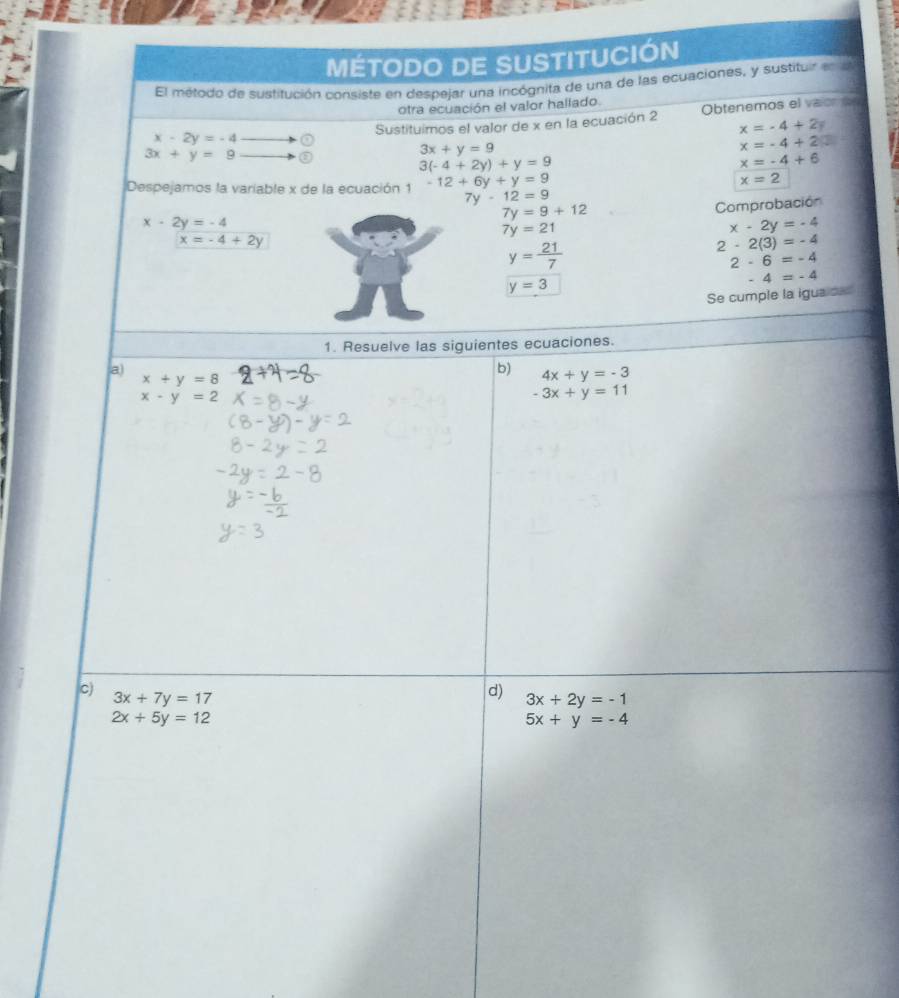 MÉTODO DE SUSTITUCIÓN
El método de sustitución consiste en despejar una incógnita de una de las ecuaciones, y sustituir
otra ecuación el valor hallado.
x - 2y = - 4 ①
3x + y = 9 ②
Despejamos la variable x de la ecuación 1
x - 2y = - 4
x = - 4 + 2y
Sustituimos el valor de x en la ecuación 2
3x + y = 9
3(- 4 + 2y) + y = 9
- 12 + 6y + y = 9
7y - 12 = 9
7y = 9 + 12
7y = 21
y = 21/7
y = 3
Obtenemos el valor
x = - 4 + 2y
x = - 4 + 2
x = - 4 + 6
x = 2
Comprobación
x - 2y = - 4
2 - 2(3) = - 4
2 - 6 = - 4
- 4 = - 4
Se cumple la igualdad
1. Resuelve las siguientes ecuaciones.
a)
x + y = 8
x - y = 2
=8
x = 8 - y
(8 - y) - y = 2
8 - 2y = 2
-2y = 2 - 8
y = -6/-2
y = 3
b)
4x + y = - 3
- 3x + y = 11
c)
3x + 7y = 17
2x + 5y = 12
d)
3x + 2y = - 1
5x + y = - 4